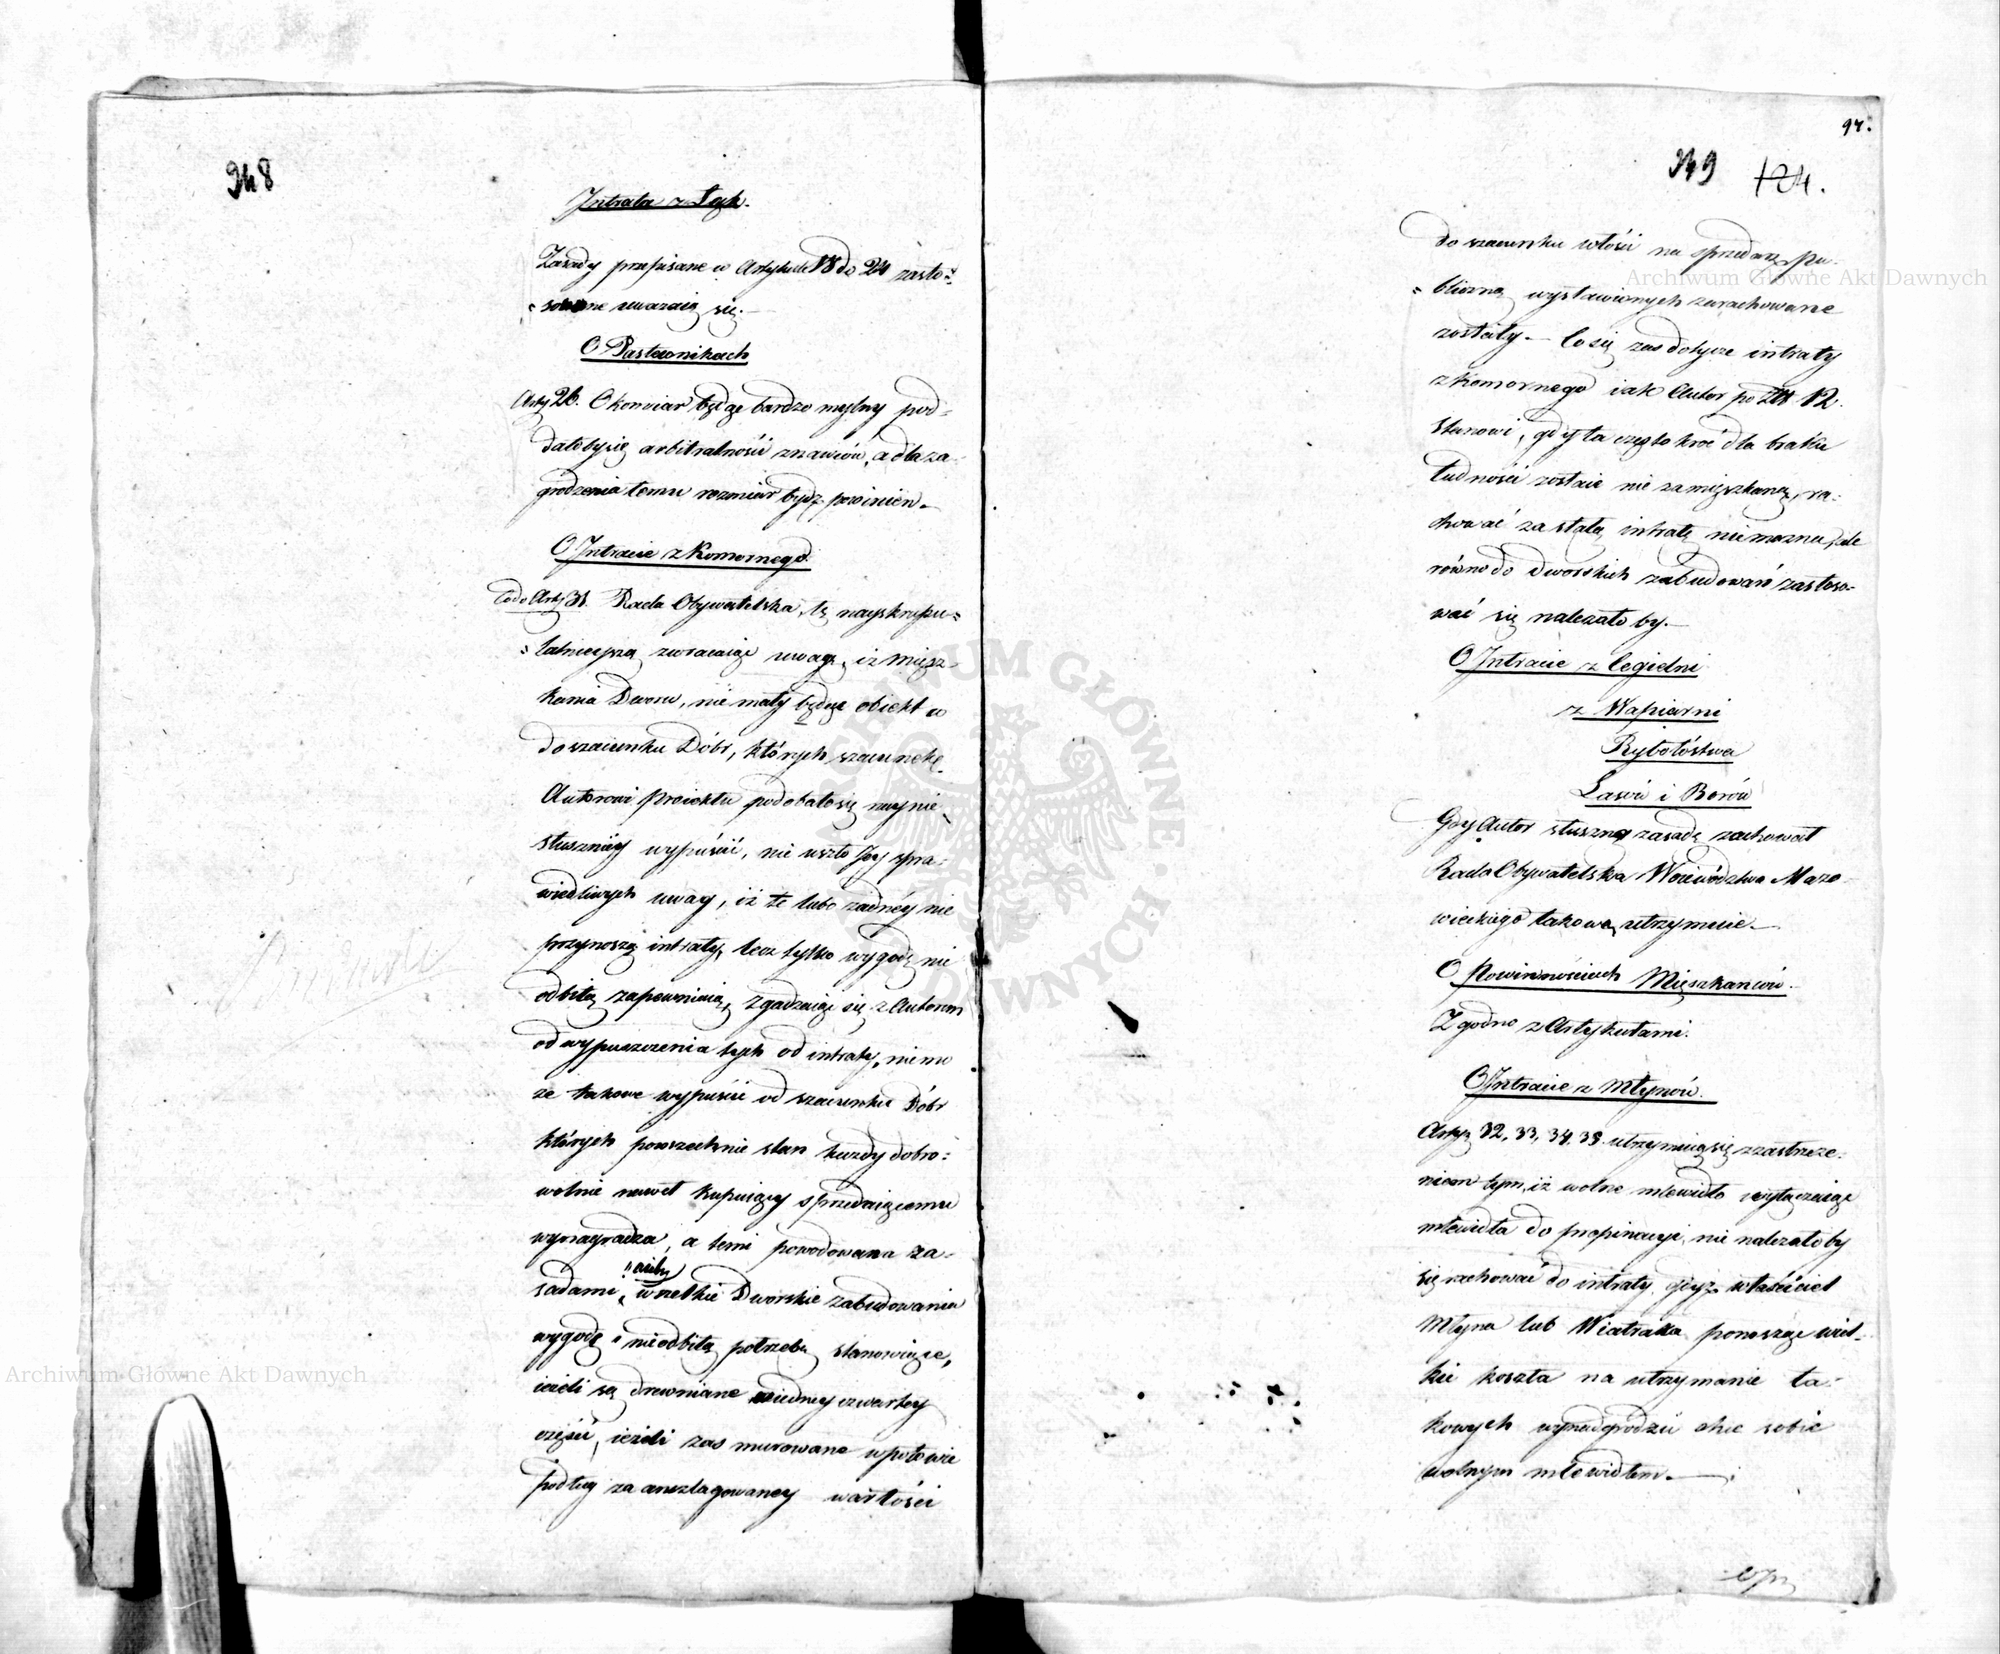 948
Intrata z Łąk.
Zasady przepisane w Artykule 18 do 24 zasto=
=sowane uważaią się.—
O Pastwnikach
Arty 26. Okomiar będąc bardzo mylny pod=
dałoby się arbitralności znawców, a dla za=
grodzenia temu rozmiar bydź powinien.
O Intracie z Komornego.
Co do Arty 31. Rada Obywatelska, tę nayskrupu=
=latnieyszą zwracaiąc uwagę, iż miesz=
kania Dworu, nie mały będąc obiekt w
do szacunku Dóbr, których szacunek
Autorowi proiektu podobało się nay nie
słuszniey wypuścić, nie uszło Jey spra=
wiedliwych uwag, iż te lubo żadnéy nie
przynoszą intraty, lecz tylko wygodę nie
odbitą zapewniaią, zgadzaiąc się z Autorem
od wypuszczenia tych od intraty, nie mo
że takowe wypuścić od szacunku Dóbr
których powszechnie stan każdy dobro=
wolnie nawet kupuiący sprzedaiącemu
wynagradza, a temi powodowana za=
sadami, ażeby wszelkie Dworskie zabudowania
wygodę i nieodbitą potrzebę stanowiące,
ieżeli są drewniane w iedney czwartey
części, ieżeli zaś murowane w połowie
podług zaanszlagowaney wartości
94.
949 124.
do szacunku włości na sprzedarz pu=
=bliczną wystawionych zarachowane
zostały.— Co się zaś dotycze intraty
z Komornego iak Autor po Zł 12.
stanowi, gdy ta częstokroć dla braku
ludności zostaie nie zamięszkaną, ra=
chować za stałą intratę nie można, ale
równo do dworskich zabudowań zastoso=
wać się należało by.—
O Intracie z Cegielni
z Wapiarni
Rybołóstwa
Lasów i Borów
Gdy Autor słuszną zasadę zachował
Rada Obywatelska Woiewództwa Mazo=
wieckiego takową utrzymuie.—
O Powinnościach Mięszkańców.
Zgodno z Artykułami.
O Intracie z Młynów.
Arty 32, 33, 34. 35. utrzymuią się z zastrzeże=
niem tym, iż wolne mlewidło wyłączaiąc
mlewidła do propinacyi, nie należało by
się rachować do intraty, gdyż właściciel
Młyna lub Wiatraka ponosząc wiel=
kie koszta na utrzymanie ta=
kowych wynadgrodzić chce sobie
wolnym mlewidłem.—
Archiwum Główne Akt Dawnych
Archiwum Główne Akt Dawnych
ARCHIWUM GŁÓWNE AKT DAWNYCH